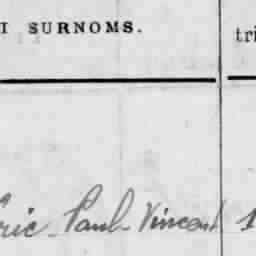 I SURNOMS.
tri
eric Paul Vincent 1